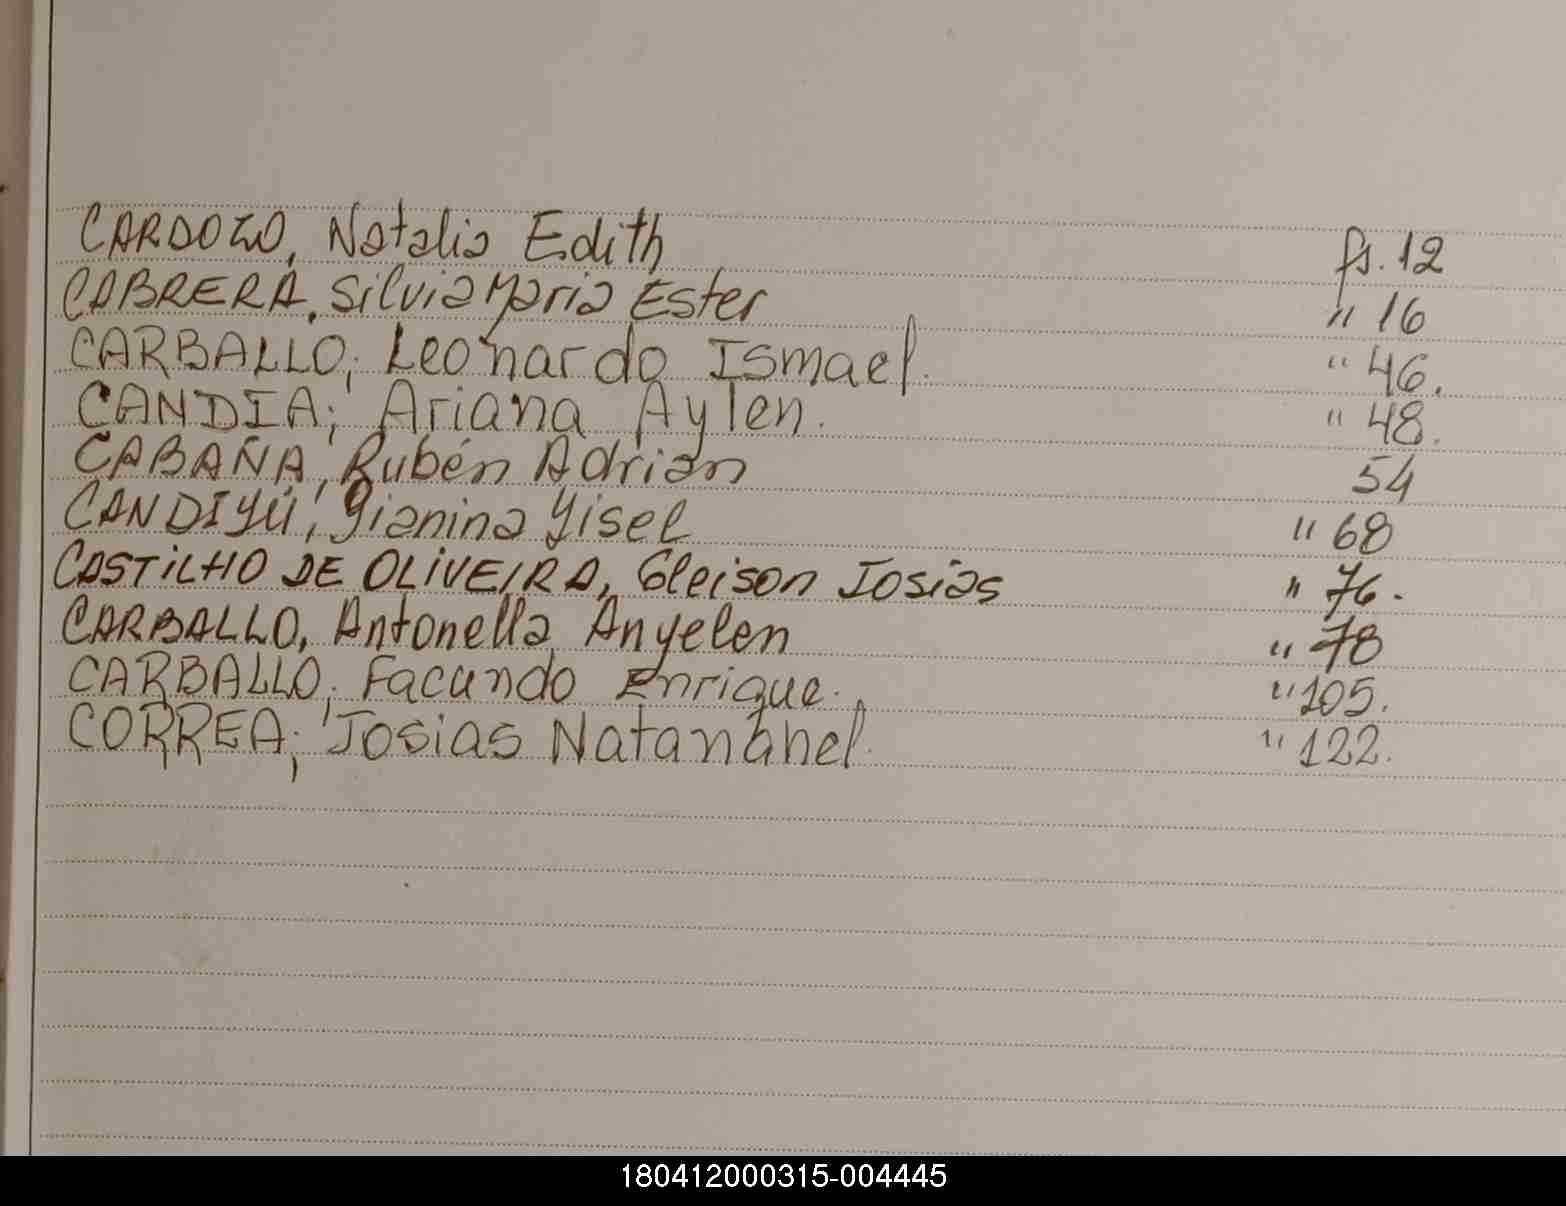 CARDOZO, Natalia Edith fs. 12
CABRERA, Silvia Maria Ester " 16
CARBALLO; Leonardo Ismael. " 46.
CANDIA; Ariana Aylen. " 48.
CABAÑA, Rubén Adrian 54
CANDIYÚ, Gianina Gisel " 68
CASTILHO DE OLIVEIRA, Gleison Josias " 76.
CARBALLO, Antonella Anyelen " 78
CARBALLO; Facundo Enrique. " 105.
CORREA; Josias Natanahel. " 122.
180412000315-004445